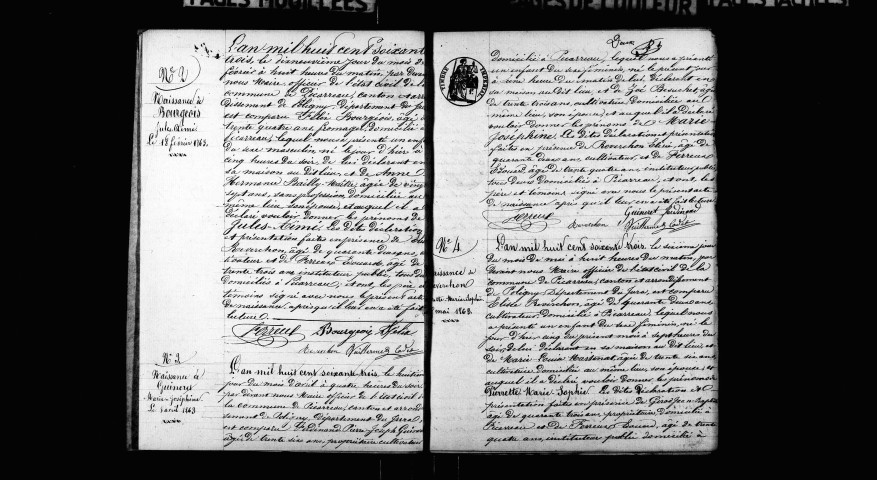 PAGES MOUILLEES
PAGES DE COULEUR
PAGES TACHEES
N° 2
Naissance de
Bourgeois
Jules Aimé
Le 18 février 1863.
L'an mil huit cent soixante
trois, le dixneuvième jour du mois de
février à huit heures du matin, par devant
nous Maire officier de l'état civil de la
commune de Picarreau, canton et arron
dissement de Poligny, Département du Jura
est comparu Félix Bourgeois, âgé de
trente quatre ans, fromager, domicilié à
Picarreau, lequel nous a présenté un enfant
du sexe masculin né le jour d'hier à
cinq heures du soir, de lui déclarant en
sa maison au dit lieu, et de Anne
Hermance Bailly-Maître, âgée de vingt
sept ans, sans profession, domiciliée au
même lieu, son épouse, et auquel il a
déclaré vouloir donner les prénoms de
Jules-Aimé. Les dites déclaration
et présentation faites en présence de
Roverchon, âgé de quarante deux ans, cul
tivateur et de Perreux Edouard, âgé de
trente trois ans instituteur public, tous deux
domiciliés à Picarreau; et ont, les père et
témoins signé avec nous le présent acte
de naissance, après qu'il leur en a été fait
lecture.
Perreux Bourgeois Félix
Reverchon
N° 3
Naissance de
Guineret
Marie-Joséphine
Le 7 avril 1863
L'an mil huit cent soixante trois, le huitième
jour du mois d'avril à quatre heures du soir
par devant nous Maire officier de l'état civil de
la commune de Picarreau, canton et arron
dissement de Poligny, Département du Jura,
est comparu Ferdinand Pierre-Joseph Guineret
âgé de trente six ans, propriétaire cultivateur
Deux
domicilié à Picarreau, lequel nous a présenté
un enfant du sexe féminin, né le
à une heure du matin de lui déclarant en
sa maison au dit lieu et de Zoé Bouchet, âgée
de trente trois ans, cultivatrice domiciliée au
même lieu, son épouse, et auquel il a déclaré
vouloir donner les prénoms de Marie
Joséphine. Les dites déclaration et présentation
faites en présence de Roverchon Elisée, âgé de
quarante deux ans, cultivateur, et de Perreux
Edouard âgé de trente quatre ans, instituteur public
tous deux domiciliés à Picarreau, et ont les
père et témoins signé avec nous le présent acte
de naissance après qu'il leur en a été fait lecture.
Perreux Guineret
Reverchon
N° 4
Naissance de
Reverchon
Marie-Sophie
mai 1863.
L'an mil huit cent soixante trois, le sixième jour
du mois de mai à huit heures du matin, par
devant nous Maire officier de l'état civil de la
commune de Picarreau, canton et arrondissement
de Poligny, Département du Jura, est comparu
Elisée Roverchon, âgé de quarante deux ans
cultivateur, domicilié à Picarreau, lequel nous
a présenté un enfant du sexe féminin, né le
jour d'hier cinq du présent mois à sept heures du
soir, de lui déclarant en sa maison au dit lieu et
de Marie Louise âgée de trente six ans
cultivatrice domiciliée au même lieu, son épouse; et
auquel il a déclaré vouloir donner les prénoms de
Pierrette-Marie-Sophie. Les dites déclaration et
présentation faites en présence de
âgé de quarante trois ans propriétaire domicilié à
Picarreau et de Perreux Edouard, âgé de trente
quatre ans, instituteur public domicilié à